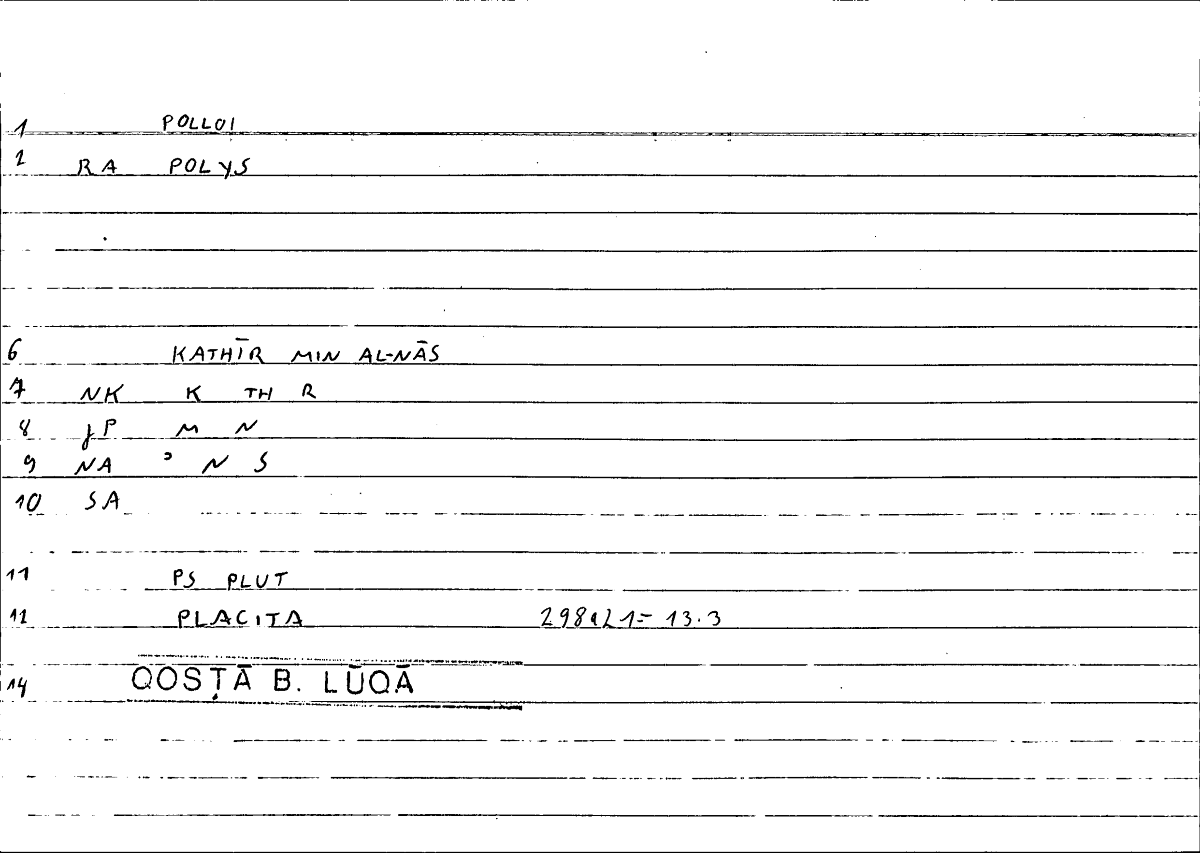 1 POLLOI
2 RA POLYS
6 KATHĪR MIN AL-NĀS
7 NK K TH R
8 JP M N
9 NA ʾ N S
10 SA
11 PS PLUT
12 PLACITA 298a21= 13.3
14 QOSṬĀ B. LŪQĀ